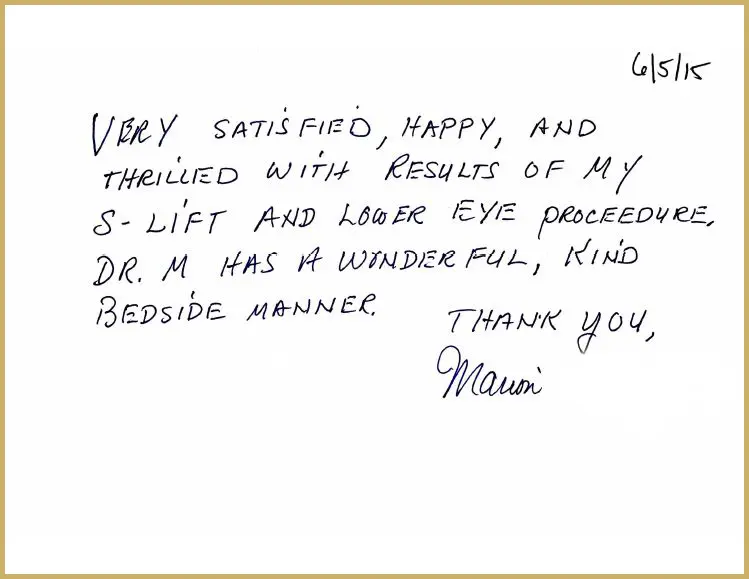 6/5/15
VERY SATISFIED, HAPPY, AND
THRILLED WITH RESULTS OF MY
S-LIFT AND LOWER EYE PROCEEDURE,
DR. M HAS A WONDERFUL, KIND
BEDSIDE MANNER.
THANK YOU,
Marion